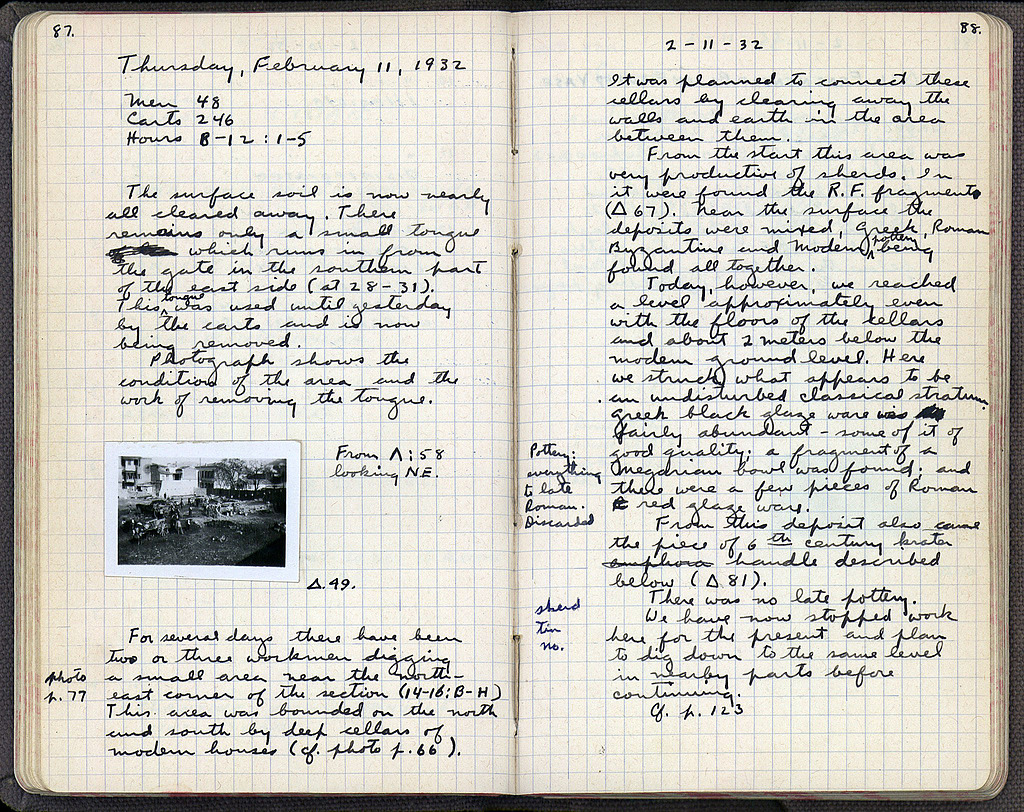 87.
Thursday, February 11, 1932
Men 48
Carts 246
Hours 8-12 : 1-5
The surface soil is now nearly
all cleared away. There
remains only a small tongue
which runs in from
the gate in the southern part
of the east side (at 28-31).
This tongue was used until yesterday
by the carts and is now
being removed.
Photograph shows the
condition of the area and the
work of removing the tongue.
From Λ:58
looking NE.
Δ.49.
For several days there have been
two or three workmen digging
photo
p. 77
a small area near the north-
east corner of the section (14-16:B-H)
This area was bounded on the north
and south by deep cellars of
modern houses (cf. photo p. 66).
88.
2-11-32
It was planned to connect these
cellars by clearing away the
walls and earth in the area
between them.
From the start this area was
very productive of sherds. In
it were found the R.F. fragments
(Δ 67). Near the surface the
deposits were mixed, Greek, Roman
Byzantine and Modern pottery being
found all together.
Today, however, we reached
a level approximately even
with the floors of the cellars
and about 2 meters below the
modern ground level. Here
we struck what appears to be
an undisturbed classical stratum.
Greek black glaze ware was
fairly abundant - some of it of
good quality; a fragment of a
Megarian bowl was found; and
there were a few pieces of Roman
red glaze ware.
Pottery:
everything
to late
Roman.
Discarded
From this deposit also came
the piece of 6th century krater
amphora handle described
below (Δ 81).
There was no late pottery.
We have now stopped work
here for the present and plan
to dig down to the same level
in nearby parts before
continuing.
Cf. p. 123
sherd
tin
no.